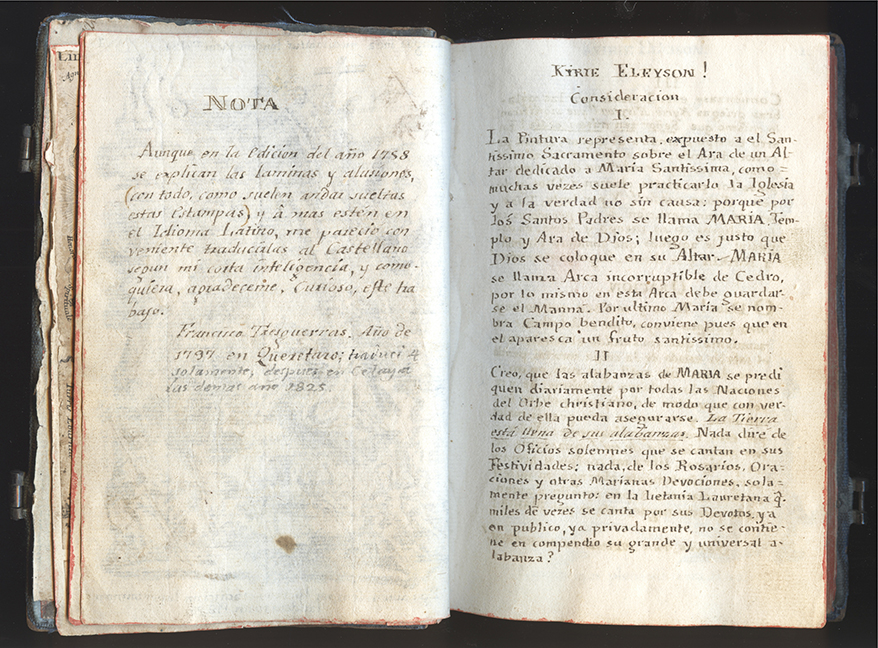 NOTA
Aunque en la Edicion del año 1758
se explican las laminas y alusiones,
(con todo, como suelen andar sueltas
estas Estampas) y á mas estén en
el Idioma Latino, me pareció con
veniente traducirlas al Castellano
segun mi corta inteligencia, y como-
quiera, agradeceme, Curioso, este tra
bajo.
Francisco Tresguerras. Año de
1797 en Queretaro; traduci 4
solamente, despues en Celaya
las demas año 1825.
KIRIE ELEYSON!
Consideracion
I.
La Pintura representa, expuesto a el San-
tissimo Sacramento sobre el Ara de un Al-
tar dedicado a María Santissima, como=
muchas vezes suele practicarlo la Iglesia
y a la verdad no sin causa: porque por
los Santos Padres se llama MARIA, Tem-
plo y Ara de Dios; luego es justo que
Dios se coloque en su Altar. MARIA
se llama Arca incorruptible de Cedro,
por lo mismo en esta Arca debe guardar-
se el Manná. Por ultimo María se nom-
bra Campo bendito, conviene pues que en
el aparesca un fruto santissimo.
II
Creo, que las alabanzas de MARIA se predi
quen diariamente por todas las Naciones
del Orbe christiano, de modo que con ver-
dad de ella pueda asegurarse. La Tierra
está llena de sus alabanzas. Nada dire de
los Oficios solemnes que se cantan en sus
Festividades; nada, de los Rosarios, Ora=
ciones y otras Marianas Devociones, sola-
mente pregunto: en la Letania Lauretana q̃
miles de vezes se canta por sus Devotos, ya
en publico, ya privadamente, no se contie-
ne en compendio su grande y universal a-
labanza?